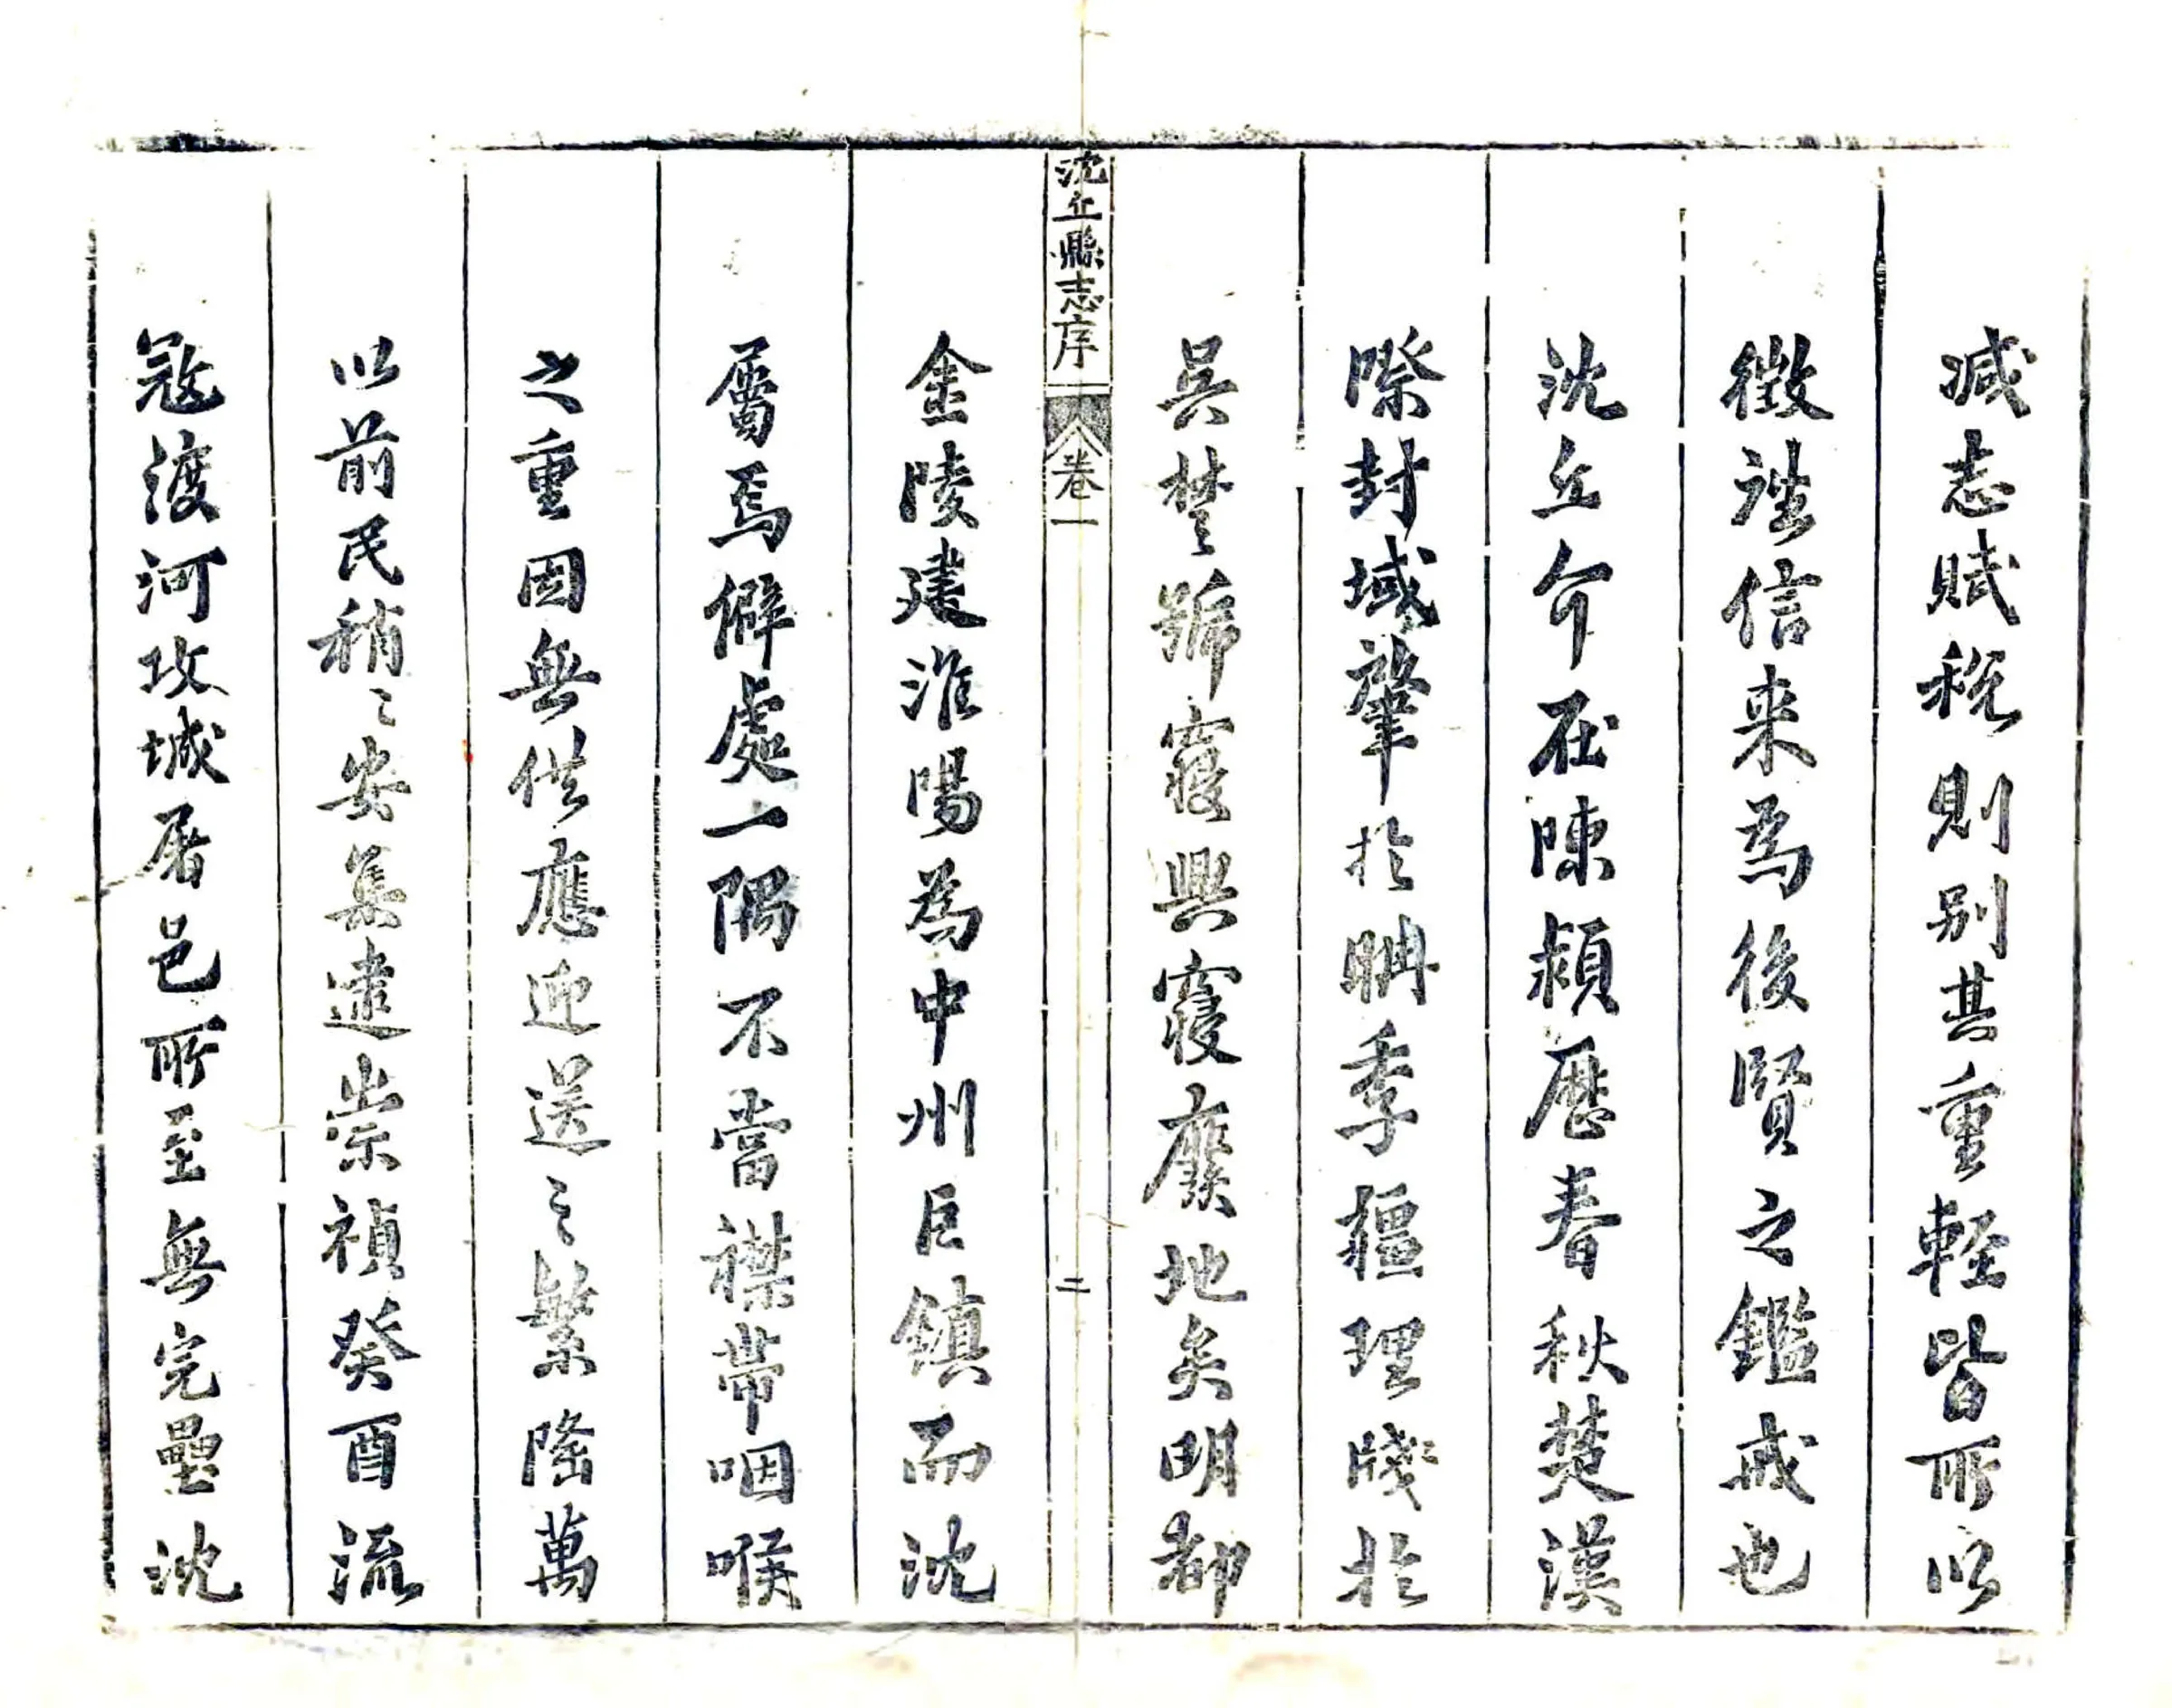 減志賦稅則别其重輕皆所以
徵徃信来為後賢之鑑戒也
沈丘介在陳潁歷春秋楚漢
際封域肇於聃季疆理殘於
吳楚號寢興寢廢地矣明都
沈丘縣志序 卷一 二
金陵建淮陽為中州巨鎮而沈
屬焉僻處一隅不當襟帶咽喉
之重因無供應迎送之繁隆萬
以前民稍〻安集逮崇禎癸酉流
寇渡河攻城屠邑所至無完壘沈